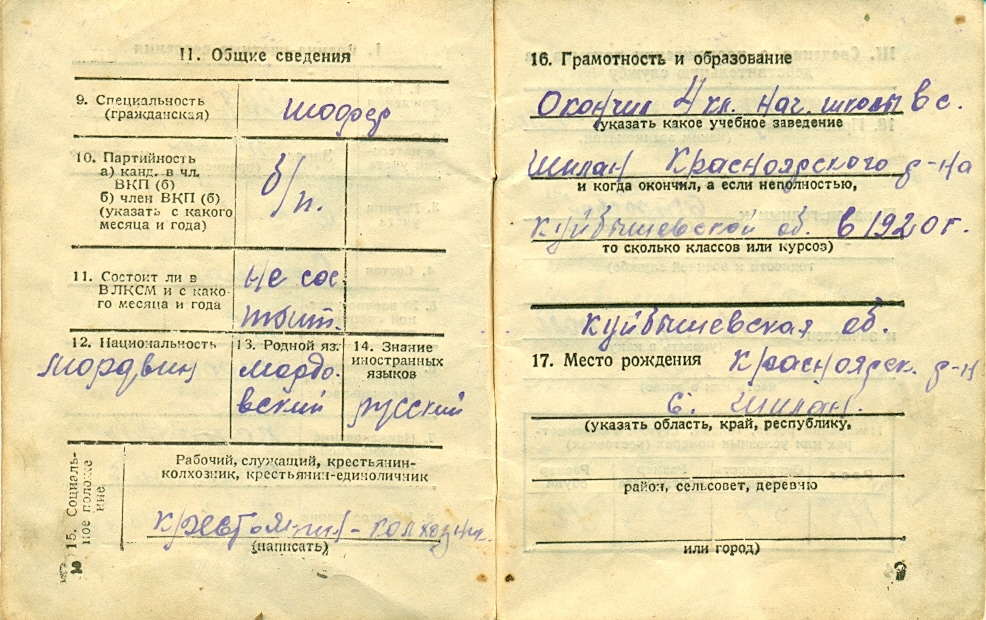 II. Общие сведения
9. Специальность
(гражданская)
шофер
10. Партийность
а) канд. в чл.
ВКП (б)
б) член ВКП (б)
(указать с какого
месяца и года)
б/п.
11. Состоит ли в
ВЛКСМ и с како-
го месяца и года
не сос
тоит.
12. Национальность
мордвин
13. Родной яз.
мордо.
вский
14. Знание
иностранных
языков
русский
15. Социаль-
ное положе
ние
Рабочий, служащий, крестьянин-
колхозник, крестьянин-единоличник
крестьянин-колхозник.
(написать)
16. Грамотность и образование
Окончил 4 кл. нач. школы в с.
(указать какое учебное заведение
Шилан Красноярского р-на
и когда окончил, а если неполностью,
Куйбышевской об. в 1920 г.
то сколько классов или курсов)
Куйбышевская об.
17. Место рождения Красноярск. р-н
с. Шилан.
(указать область, край, республику,
район, сельсовет, деревню
или город)